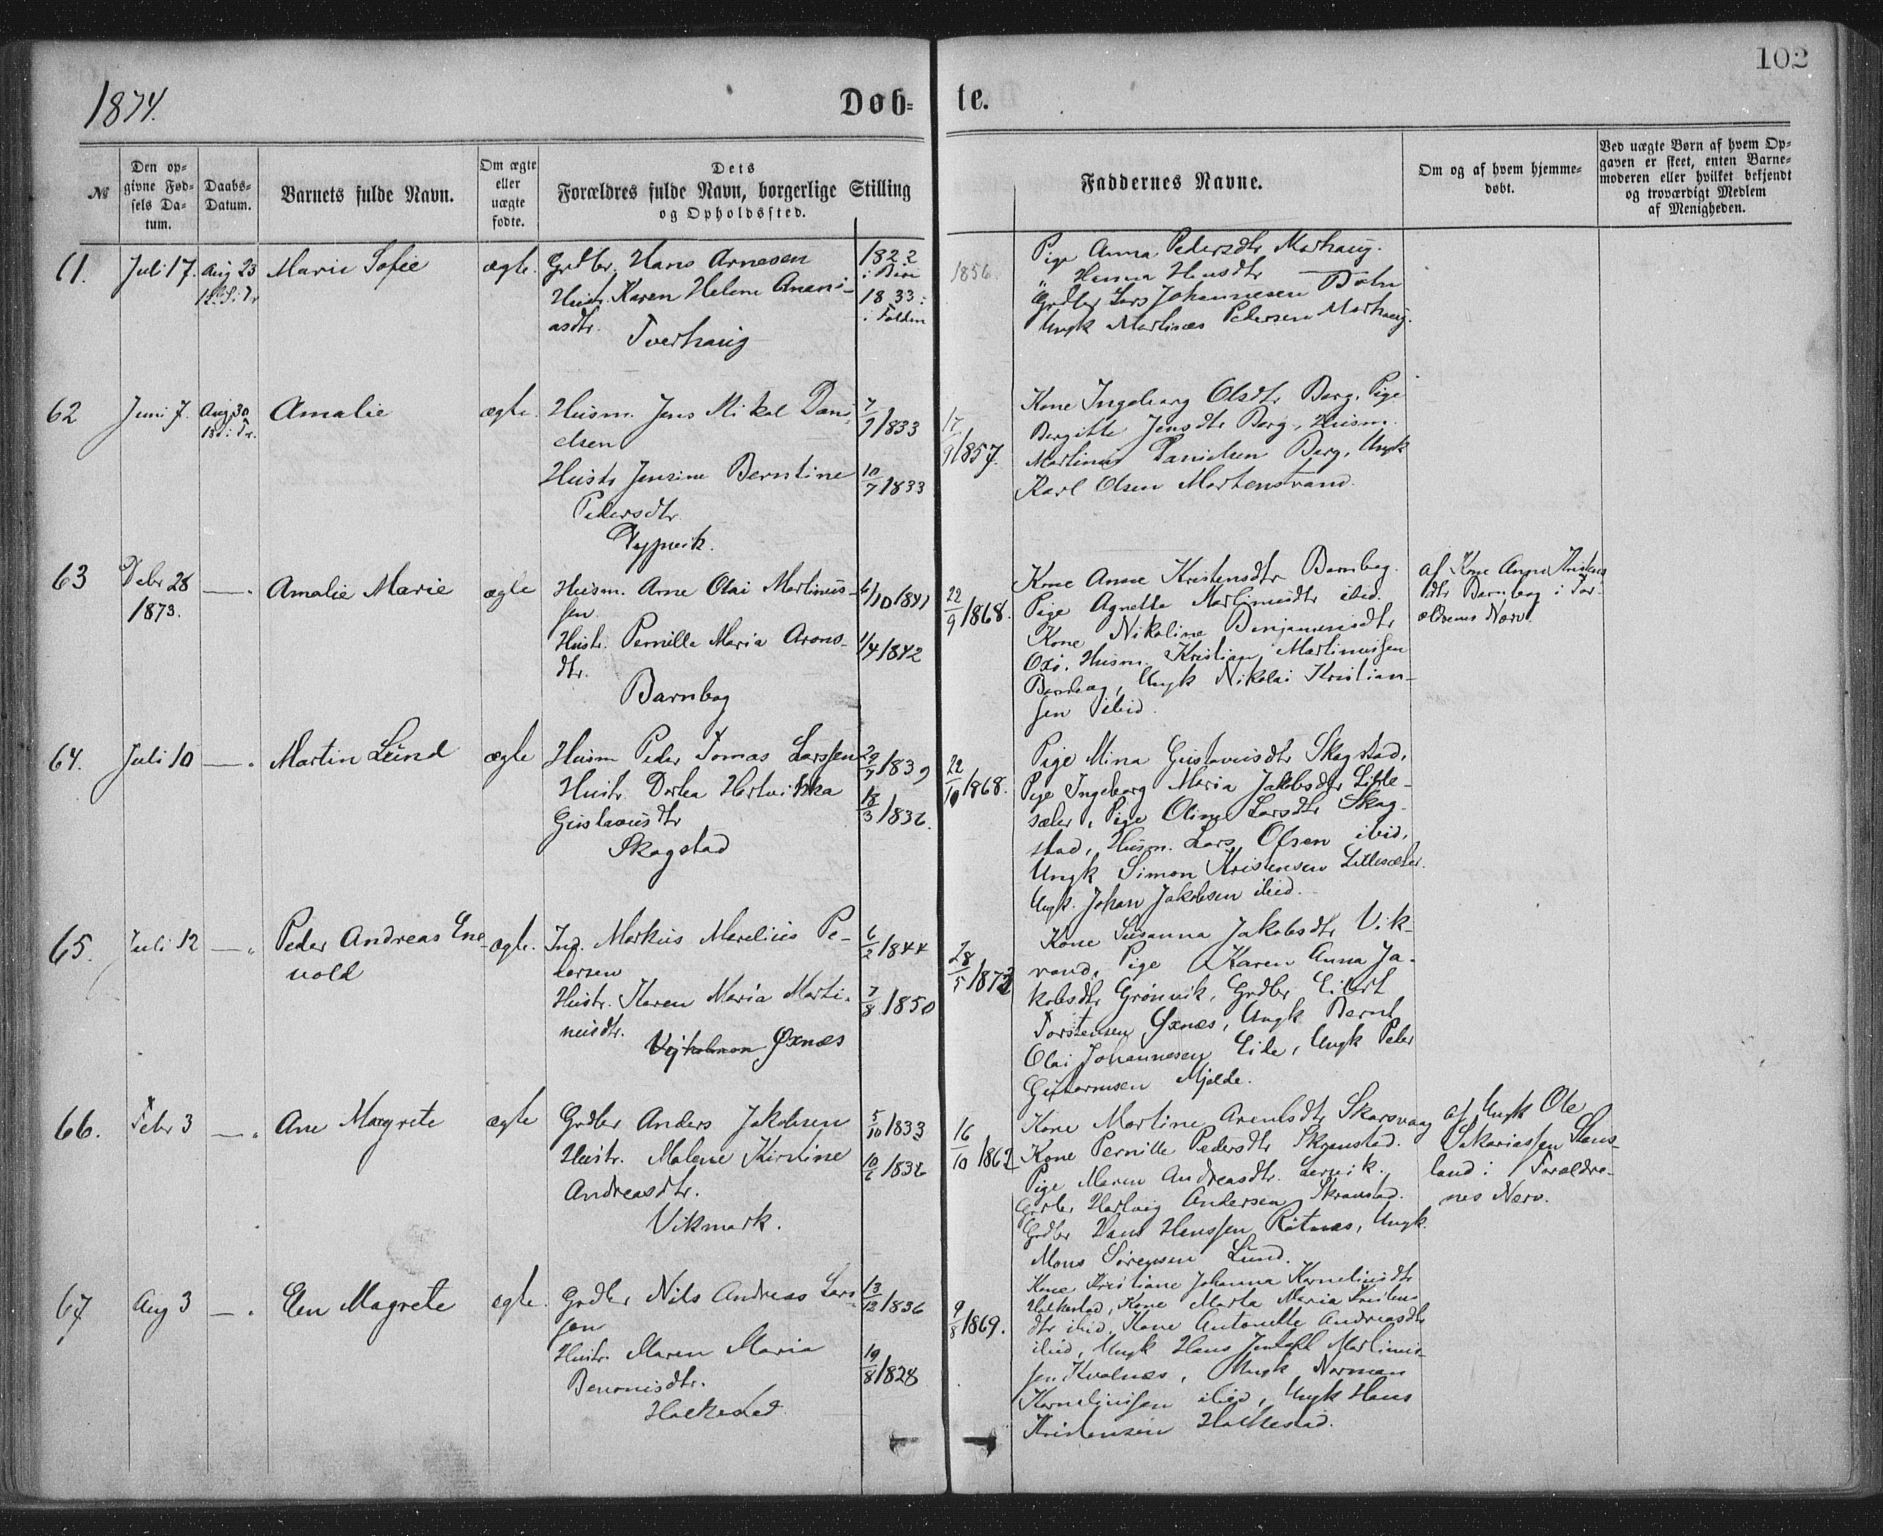 102
1874.
Døb= te.
№
Den op=
givne Fød=
sels Da=
tum.
Daabs=
Datum.
Barnets fulde Navn.
Om ægte
eller
uægte
fødte.
Dets
Forældres fulde Navn, borgerlige Stilling
og Opholdssted.
Faddernes Navne.
Om og af hvem hjemme=
døbt.
Ved uægte Børn af hvem Op=
gaven er skeet, enten Barne=
moderen eller hvilket bekjendt
og troværdigt Medlem
af Menigheden.
61. Juli 17. Aug 23 Marie Sofie ægte. Grdbr. Hans Arnesen 1822
Hustr. Karen Helene Anani- 1833
i Folden
asdtr.
Tverhaug
1856.
Pige Anna Pedersdtr Marhaug.
" Hanna Hansdtr
Grdbr Lars Johannesen
Ungk Martinæs Pedersen Marhaug.
62 Juni 7. Aug 30 Amalie ægte. Husm. Jens Mikal Dani- 7/9 1833
elsen
Hustr Jensine Berntine 10/7 1833
Pedersdtr.
17/9 1857.
Kone Ingeborg Olsdtr Berg, Pige
Bergitte Jensdtr Berg, Husm.
Martinus Danielsen Berg, Ungk
Karl Olsen Mortenstrand.
63 Febr 28 — " Amalie Marie ægte Husm. Arne Olai Martinus- 6/10 1841
1873.
sen
Hustr. Pernille Maria Arons- 1/4 1842
dtr.
Barnbog
22/9 1868.
Kone Anne Kristensdtr Barnbog.
Pige Agnette Martinusdtr ibid.
Kone Nikoline Benjaminsdtr
Husm. Kristian Martinussen
Barnbog, Ungk Nikolai Kristian-
sen ibid.
af Kone Anne Kristens
dtr Barnbog i For-
ældrenes Nærv.
64. Juli 10 — " Martin Lund ægte Husm Peder Tomas Larssen 29/7 1839
Hustr. Dorka Hertvikka 18/3 1836.
Gustavusdtr
Skagstad
22/10 1868.
Pige Mina Gustavusdtr Skagstad,
Pige Ingeborg Maria Jakobsdtr Little-
sæter, Pige Oline Larsdtr Skag-
stad, Husm. Lars Olsen ibid,
Ungk Simon Kristensen Littlesæter.
Ungk. Johan Jakobsen ibid.
65. Juli 12 — " Peder Andreas Ene- ægte. Ind. Markus Marelius Pe- 6/2 1844
vold
dersen
Hustr. Karen Maria Marti- 7/8 1850
nusdtr.
Øxnæs
28/5 1873
Kone Susanna Jakobsdtr Vik-
vand, Pige Karen Anna Ja-
kobsdtr Grønvik, Grdbr Eilert
Torstensen Øxnæs, Ungk Bernt
Olai Johannesen Eide, Ungk Peder
Guttormsen Mjelde.
66. Febr 3 — " Ane Margrete ægte Grdbr Anders Jakobsen 5/10 1833
Hustr. Malene Kirstine 1836
Andreasdtr.
Vikmark.
16/10 1862
Kone Martine Arentsdtr Skarsvaag
Kone Pernille Pedersdtr Skranstad.
Pige Maren Andreasdtr. Lervik.
Grdbr Hartvig Andersen Skranstad.
Grdbr Hans Hanssen Røtnæs, Ungk.
Mons Sørensen Lund.
af Ungk Ole
Sakariassen
land i Forældre-
nes Nærv.
67 Aug 3 — " Elen Magrete ægte. Grdbr Nils Andreas Lars- 13/12 1836
sen
Hustr. Maren Maria 19/8 1828
Benonisdtr.
Holkestad
9/8 1869.
Kone Kristiane Johanna Kornelinsdtr
Holkestad, Kone Marta Maria Kristens
dtr ibid, Kone Antonette Andreasdtr
ibid, Ungk Hans Martinus-
sen Kvalnes, Ungk Norman
Korneliussen ibid, Ungk Hans
Kristensen Holkestad.